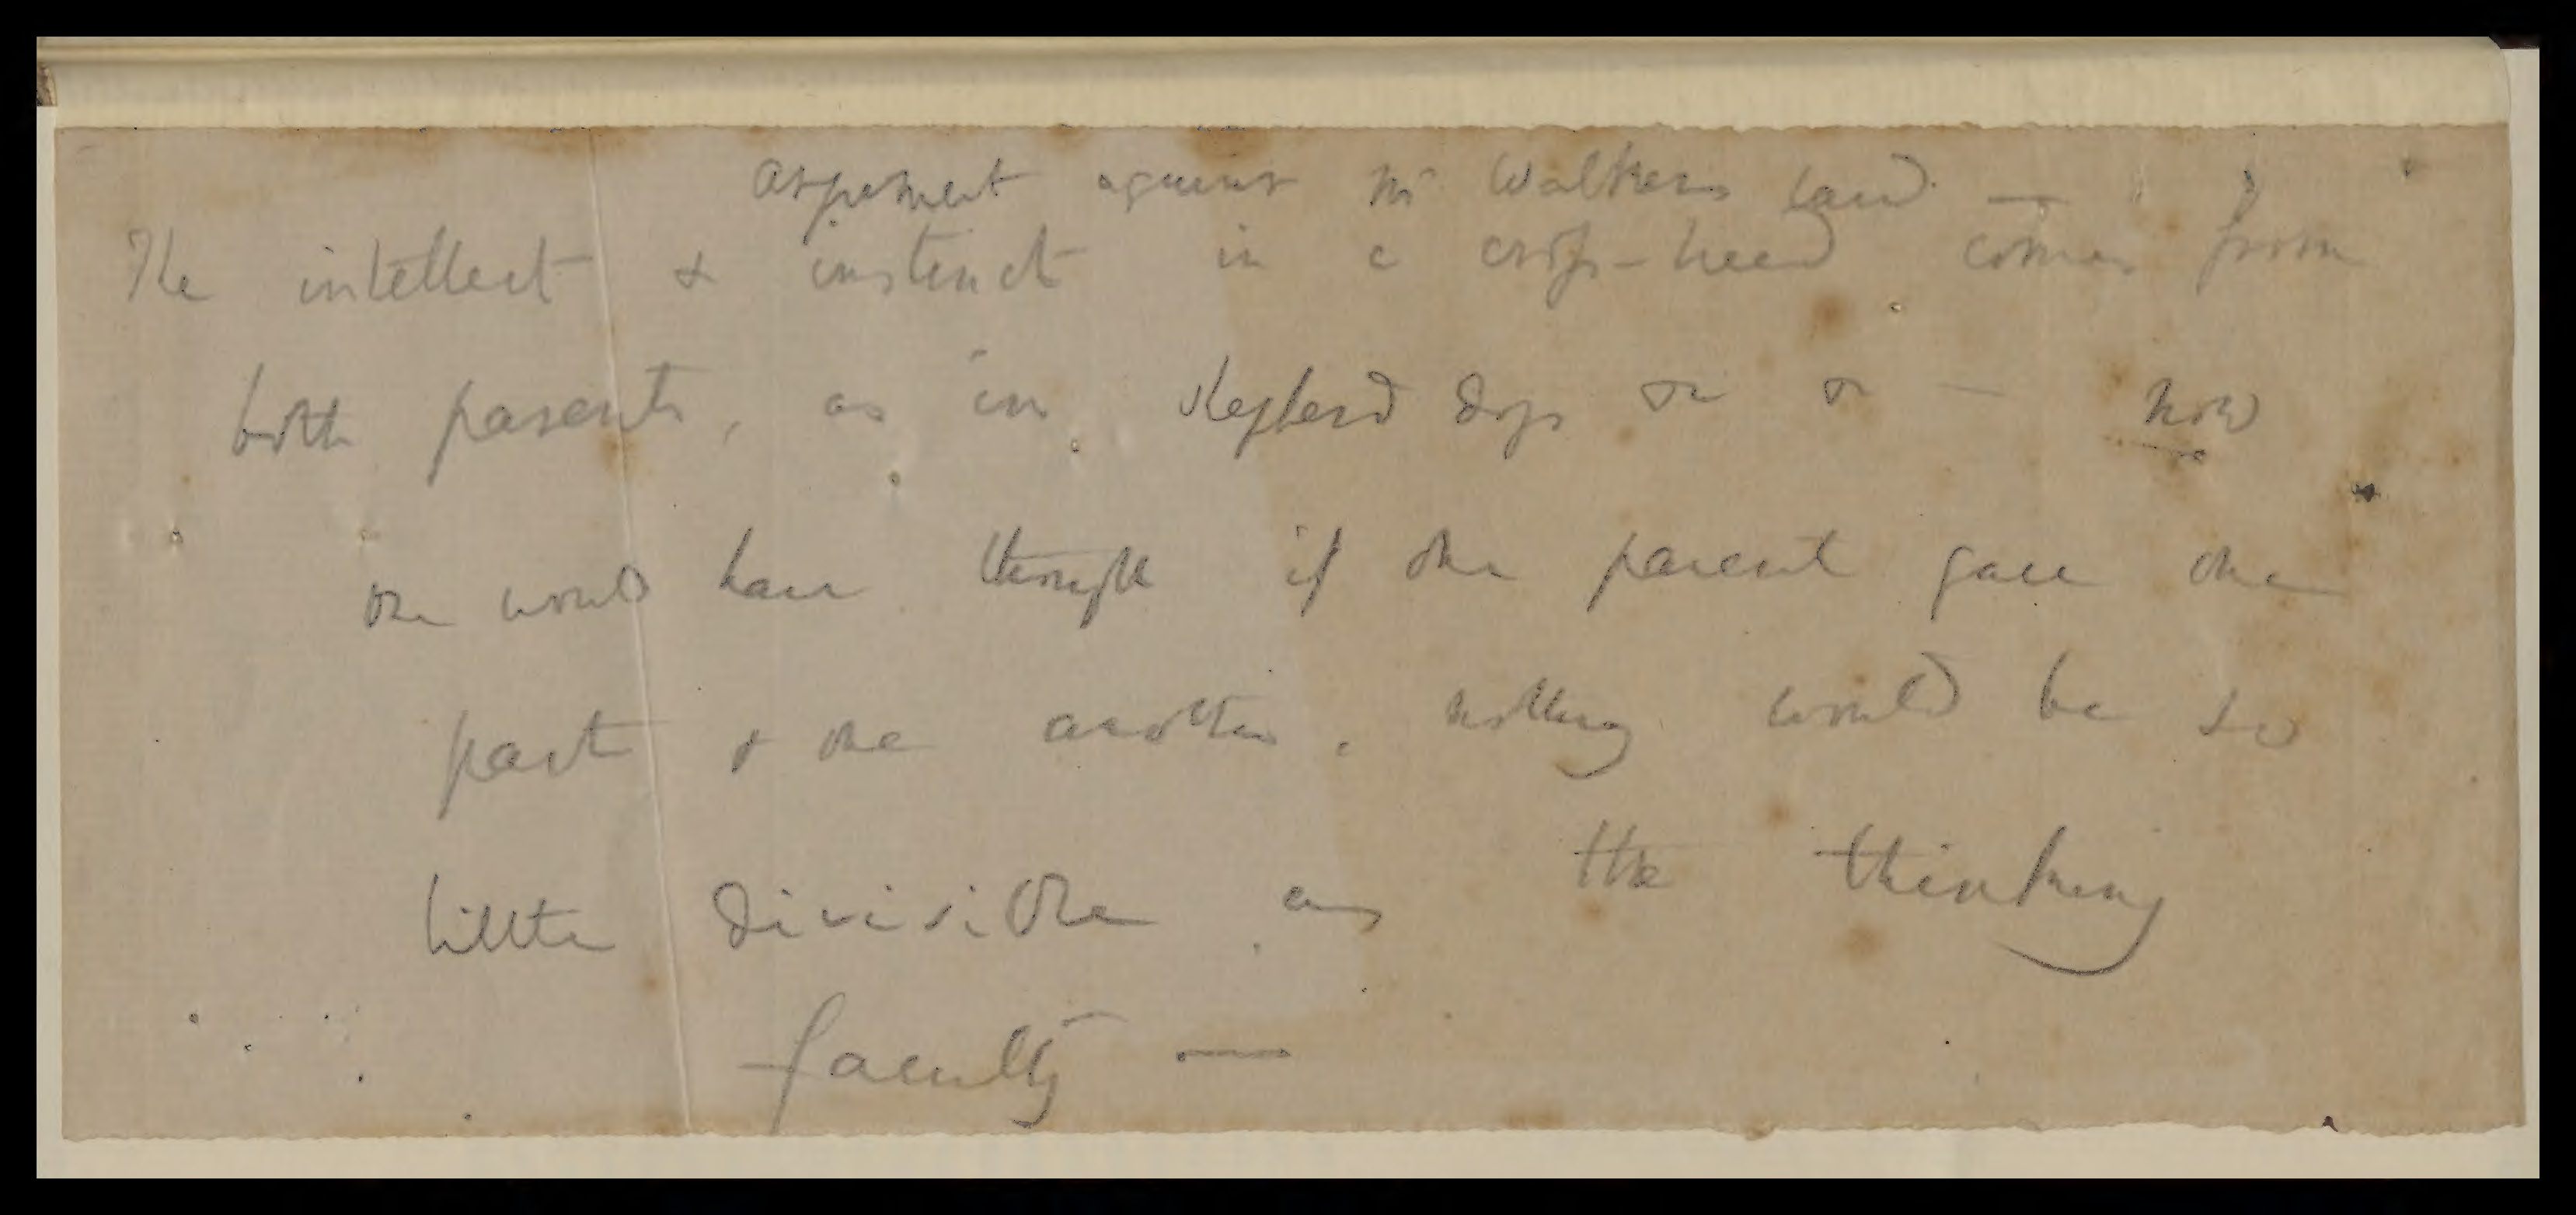 argument against Mr Walkers law —
The intellect & instinct in a cross-breed comes from
both parents, as in shepherd dogs or or — now
one would have thought if one parent gave one
part & one another, nothing would be so
little divisible as the thinking
faculty —